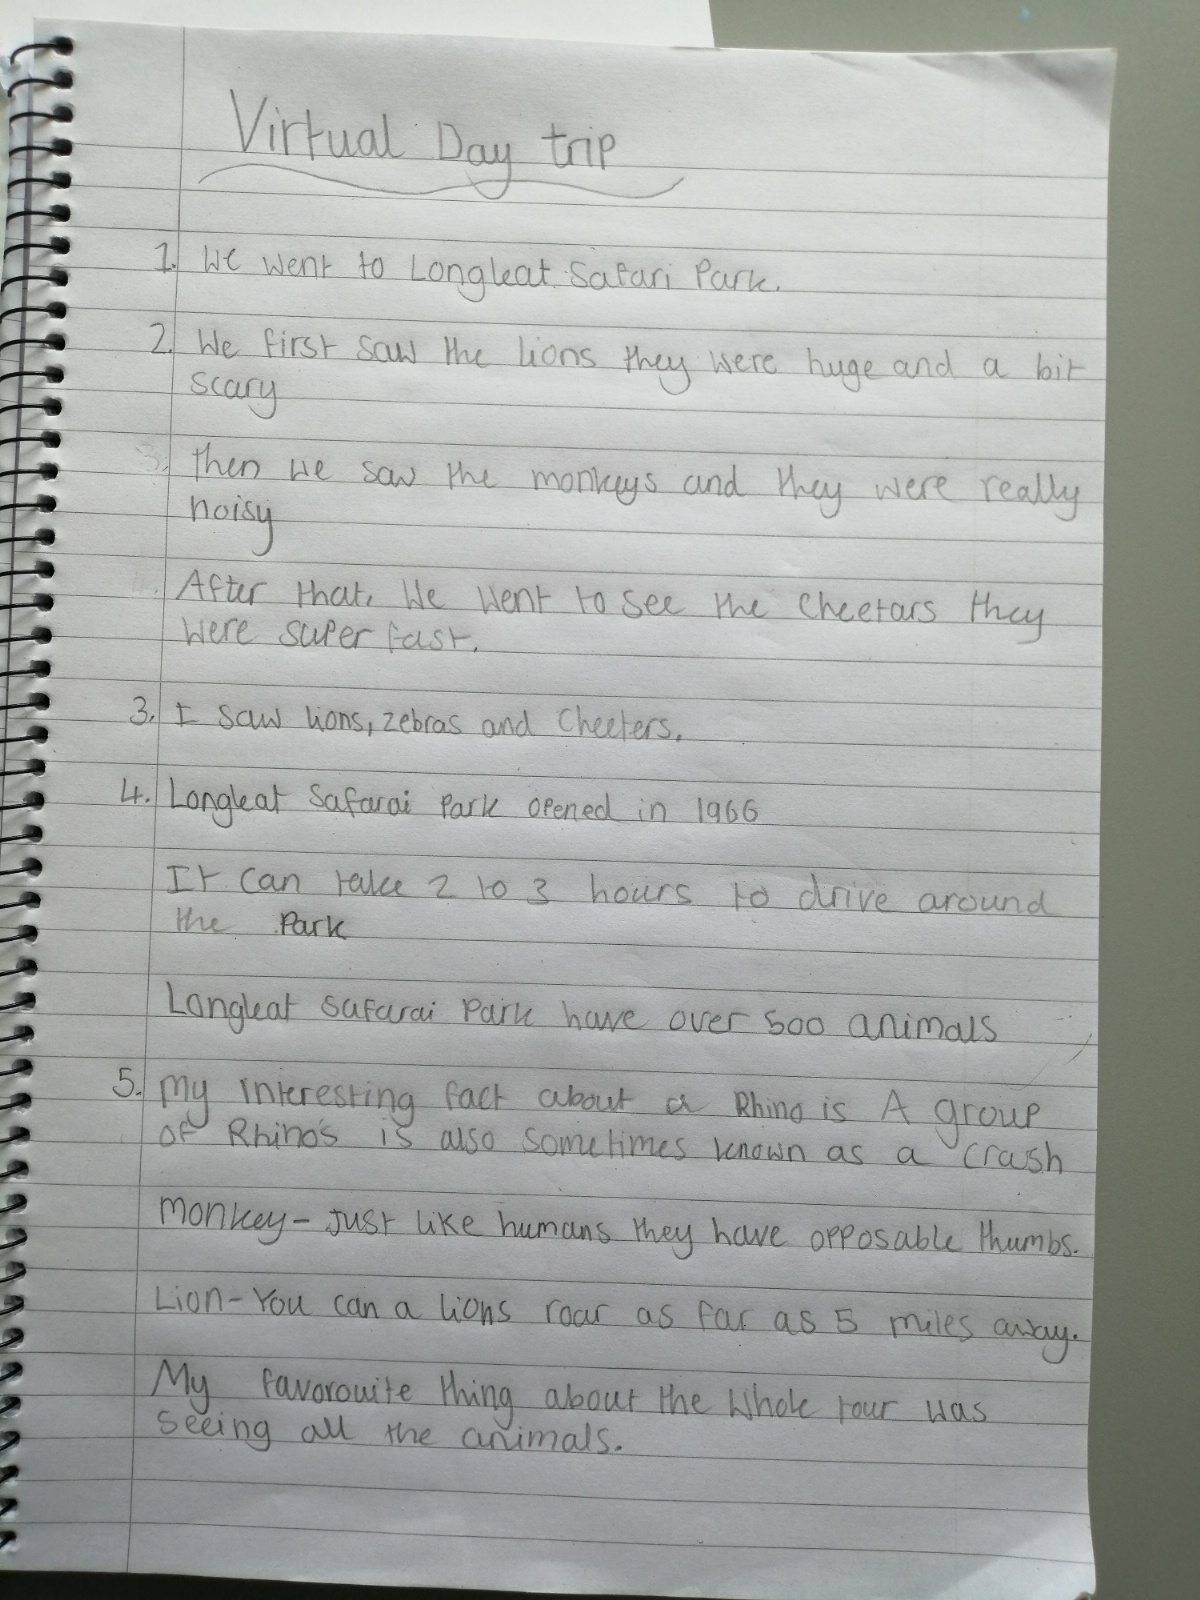 Virtual Day trip
1. We went to Longleat Safari Park.
2. We first saw the lions they were huge and a bit
scary
3. then we saw the monkeys and they were really
noisy
4. After that, We went to see the Cheetars they
were super fast.
3. I saw lions, zebras and Cheeters.
4. Longleat Safarai Park opened in 1966
It can take 2 to 3 hours to drive around
the Park
Longleat Safarai Park have over 500 animals
5. My interesting fact about a Rhino is A group
of Rhino's is also sometimes known as a crash
Monkey - Just like humans they have opposable thumbs.
Lion - You can a lions roar as far as 5 miles away.
My favorouite thing about the Whole tour was
seeing all the animals.